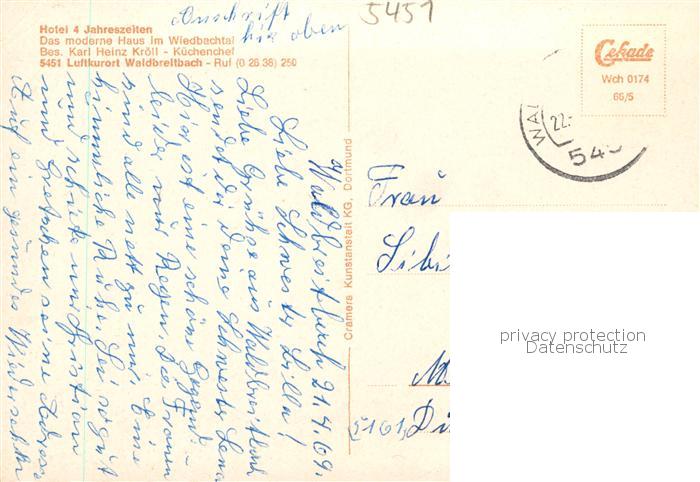 Anschrift
hie oben
5451
Hotel 4 Jahreszeiten
Das moderne Haus im Wiedbachtal
Bes. Karl Heinz Kröll - Küchenchef
5451 Luftkurort Waldbreitbach - Ruf (0 26 38) 250
Waldbreitbach 21.4.69.
Liebe Schwester Lilla!
Liebe Grüße aus Waldbreitbach
sendet dir deine Schwester Lena
Hier ist eine schöne Gegend
leider nur Regen, die Frauen
sind alle nett zu mir. Eine
himmliche Ruhe. Sei so gut
und schücke mir
und seine Adresse
Auf ein gesundes Wiedersehn
Cramers Kunstanstalt KG, Dortmund
Cekade
Wch 0174
66/5
WAL
22.
545
Frau
Sibi
M
5161 Dü
privacy protection
Datenschutz